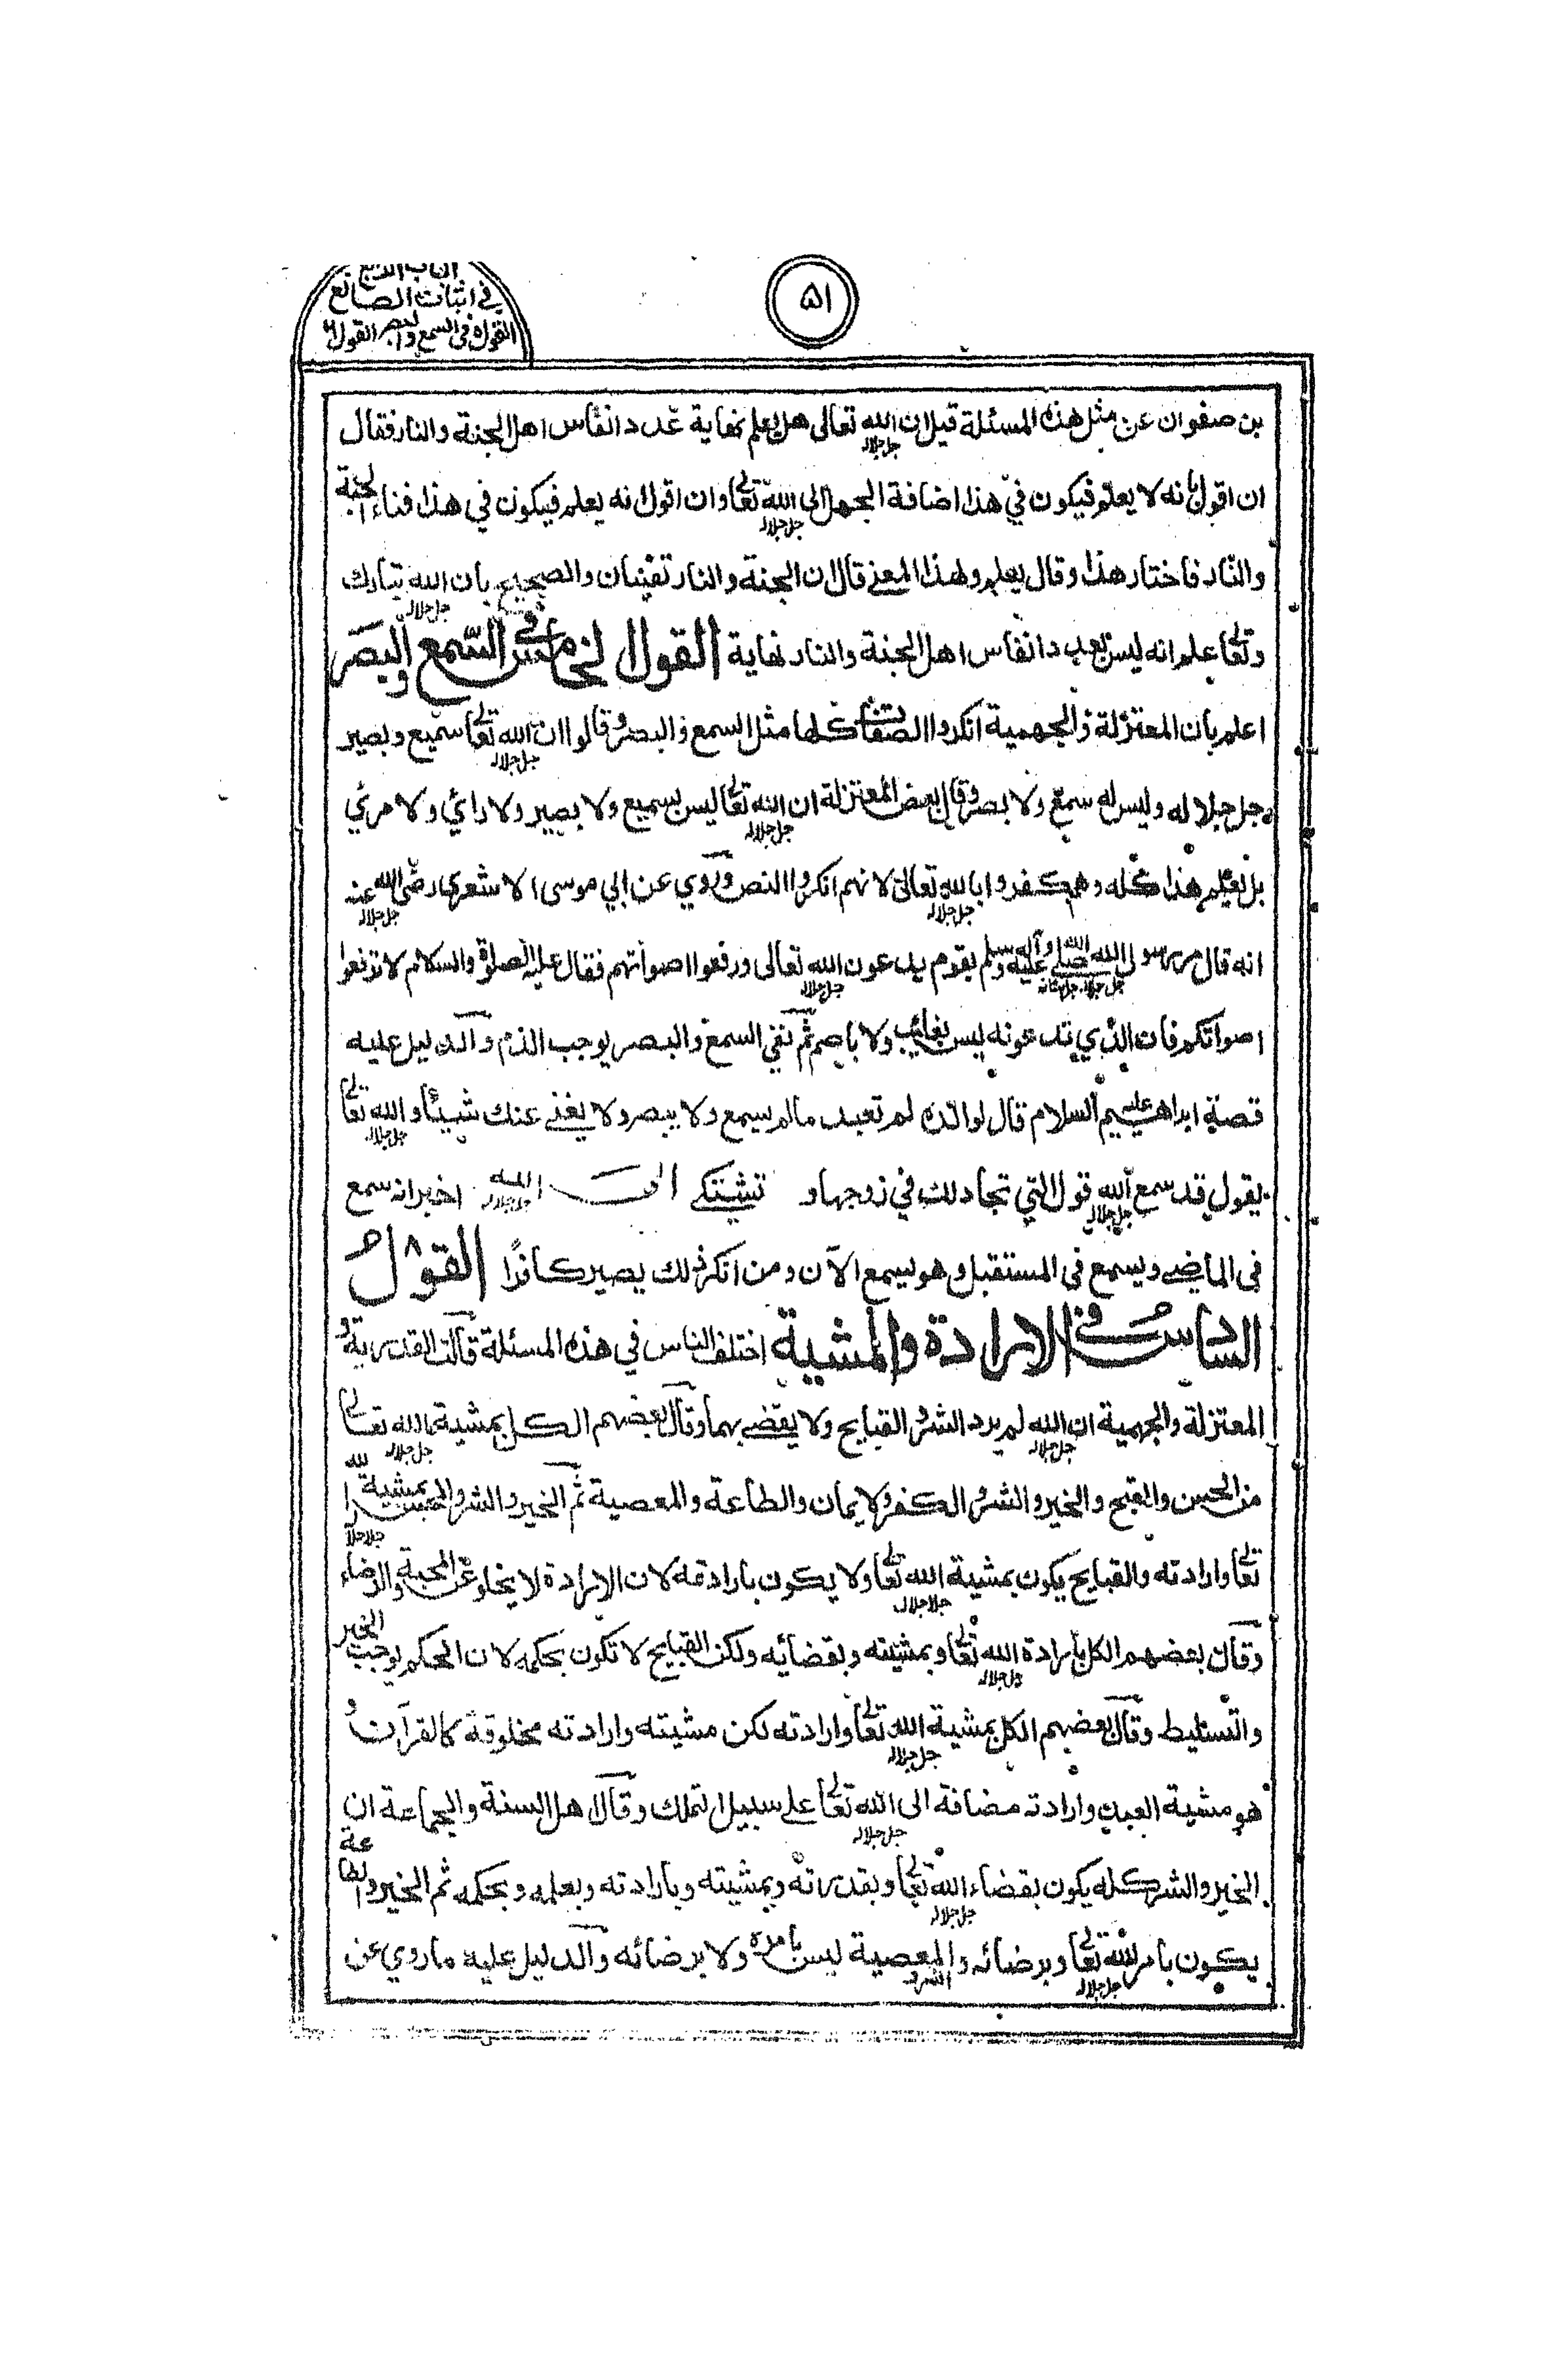 ٥١
الباب الرابع
في اثبات الصانع
القول٥ في السمع والبصر القول٦
بن صفوان عن مثل هذه المسئلة قيل ان الله تعالى هل يعلم نهاية عدد انفاس اهل الجنة والنار فقال
جل جلاله
ان اقول بانه لا يعلم فيكون في هذا اضافة الجهل الى الله تعالى وان اقول انه يعلم فيكون في هذا فناء الجنة
جل جلاله
والنار فاختار هذا وقال يعلم ولهذا المعنى قال ان الجنة والنار تفنيان والصحيح بان الله تبارك
جل جلاله
وتعالى علم انه ليس بعدد انفاس اهل الجنة والنار نهاية القول الخامس في السمع والبصر
اعلم بان المعتزلة والجهمية انكروا الصفات كلها مثل السمع والبصر وقالوا ان الله تعالى سميع وبصير
جل جلاله
جل جلاله وليس له سمع ولا بصر وقال بعض المعتزلة ان الله تعالى ليس بسميع ولا بصير ولا رائي ولا مرئي
جل جلاله
بل نعلم هذا كله وهم كفروا بالله تعالى لانهم انكروا النص وروي عن ابي موسى الاشعري رضى الله عنه
جل جلاله جل جلاله
انه قال مر رسول الله صلى الله عليه وآله وسلم بقوم يدعون الله تعالى ورفعوا اصواتهم فقال عليه الصلوة والسلام لا ترفعوا
جل جلاله جل شانه جل جلاله
اصواتكم فان الذي تدعونه ليس بغائب ولا باصم ثم نفي السمع والبصر يوجب الذم والدليل عليه
قصة ابراهيم عليه السلام قال لوالده لم تعبد مالم يسمع ولا يبصر ولا يغنى عنك شيئا والله تعالى
جل جلاله
يقول قد سمع الله قول التي تجادلك في زوجها و تشتكى الى الله اخبر انه سمع
جل جلاله جل جلاله
فى الماضى ويسمع فى المستقبل وهو يسمع الآن ومن انكر ذلك يصير كافرًا القول
السادس فى الارادة والمشية اختلف الناس في هذه المسئلة قالت القدرية و
المعتزلة والجهمية ان الله لم يرد الشر و القبايح ولا يقضى بهما وقال بعضهم الكل بمشية الله تعالى
جل جلاله جل جلاله
من الحسن والقبح والخير والشر و الكفر والايمان والطاعة والمعصية ثم الخير والشر والحسن بمشية الله
جل جلاله
تعالى وارادته والقبايح يكون بمشية الله تعالى ولا يكون بارادته لان الارادة لا يخلو عن المحبة والرضاء
جل جلاله
وقال بعضهم الكل بارادة الله تعالى وبمشيته وبقضائه ولكن القبايح لا تكون بحكمه لان الحكم يوجب الخير
جل جلاله
والتسليط وقال بعضهم الكل بمشية الله تعالى وارادته لكن مشيته وارادته مخلوقة كالقرآن و
جل جلاله
هو مشية العبد وارادته مضافة الى الله تعالى على سبيل التملك وقال اهل السنة والجماعة ان
جل جلاله
الخير والشر كله يكون بقضاء الله تعالى وبقدرته وبمشيته وبارادته وبعلمه وبحكمه ثم الخير والطاعة
جل جلاله
يكون بامر الله تعالى وبرضائه و الشر و المعصية ليس بامره ولا برضائه والدليل عليه ما روي عن
جل جلاله